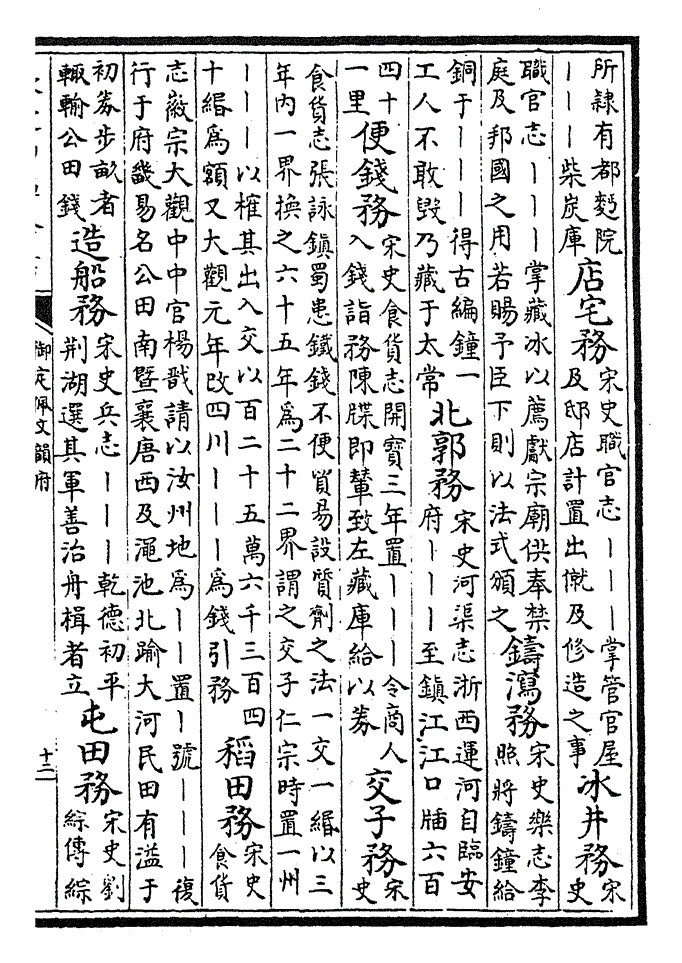 所隸有都麪院
丨丨丨柴炭庫
店宅務
宋史職官志丨丨丨掌管官屋
及邸店計置出僦及修造之事
冰井務
宋
史
職官志丨丨丨掌藏冰以薦獻宗廟供奉禁
庭及邦國之用若賜予臣下則以法式頒之
鑄瀉務
宋史樂志李
照將鑄鐘給
銅于丨丨丨得古編鐘一
工人不敢毀乃藏于太常
北郭務
宋史河渠志浙西運河自臨安
府丨丨丨至鎮江江口牐六百
四十
一里
便錢務
宋史食貨志開寶三年置丨丨丨令商人
入錢詣務陳牒即輦致左藏庫給以券
交子務
宋
史
食貨志張詠鎮蜀患鐵錢不便貿易設質劑之法一交一緡以三
年內一界換之六十五年爲二十二界謂之交子仁宗時置一州
丨丨丨以榷其出入交以百二十五萬六千三百四
十緡爲額又大觀元年改四川丨丨丨爲錢引務
稻田務
宋史
食貨
志徽宗大觀中中官楊戩請以汝州地爲丨丨置丨號丨丨丨復
行于府畿易名公田南暨襄唐西及澠池北踰大河民田有溢于
初券步畝者
輒輸公田錢
造船務
宋史兵志丨丨丨乾德初平
荆湖選其軍善治舟楫者立
屯田務
宋史劉
綜傳綜
御定佩文韻府
十二